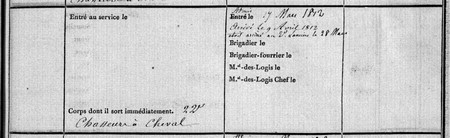 Entré au service le
Admis
Entré le 17 Mars 1812
Arrivé le 9 Avril 1812
le 28 Mars
Brigadier le
Brigadier-fourrier le
M.al-des-Logis le
M.al-des-Logis Chef le
Corps dont il sort immédiatement. 22e
Chasseurs à Cheval